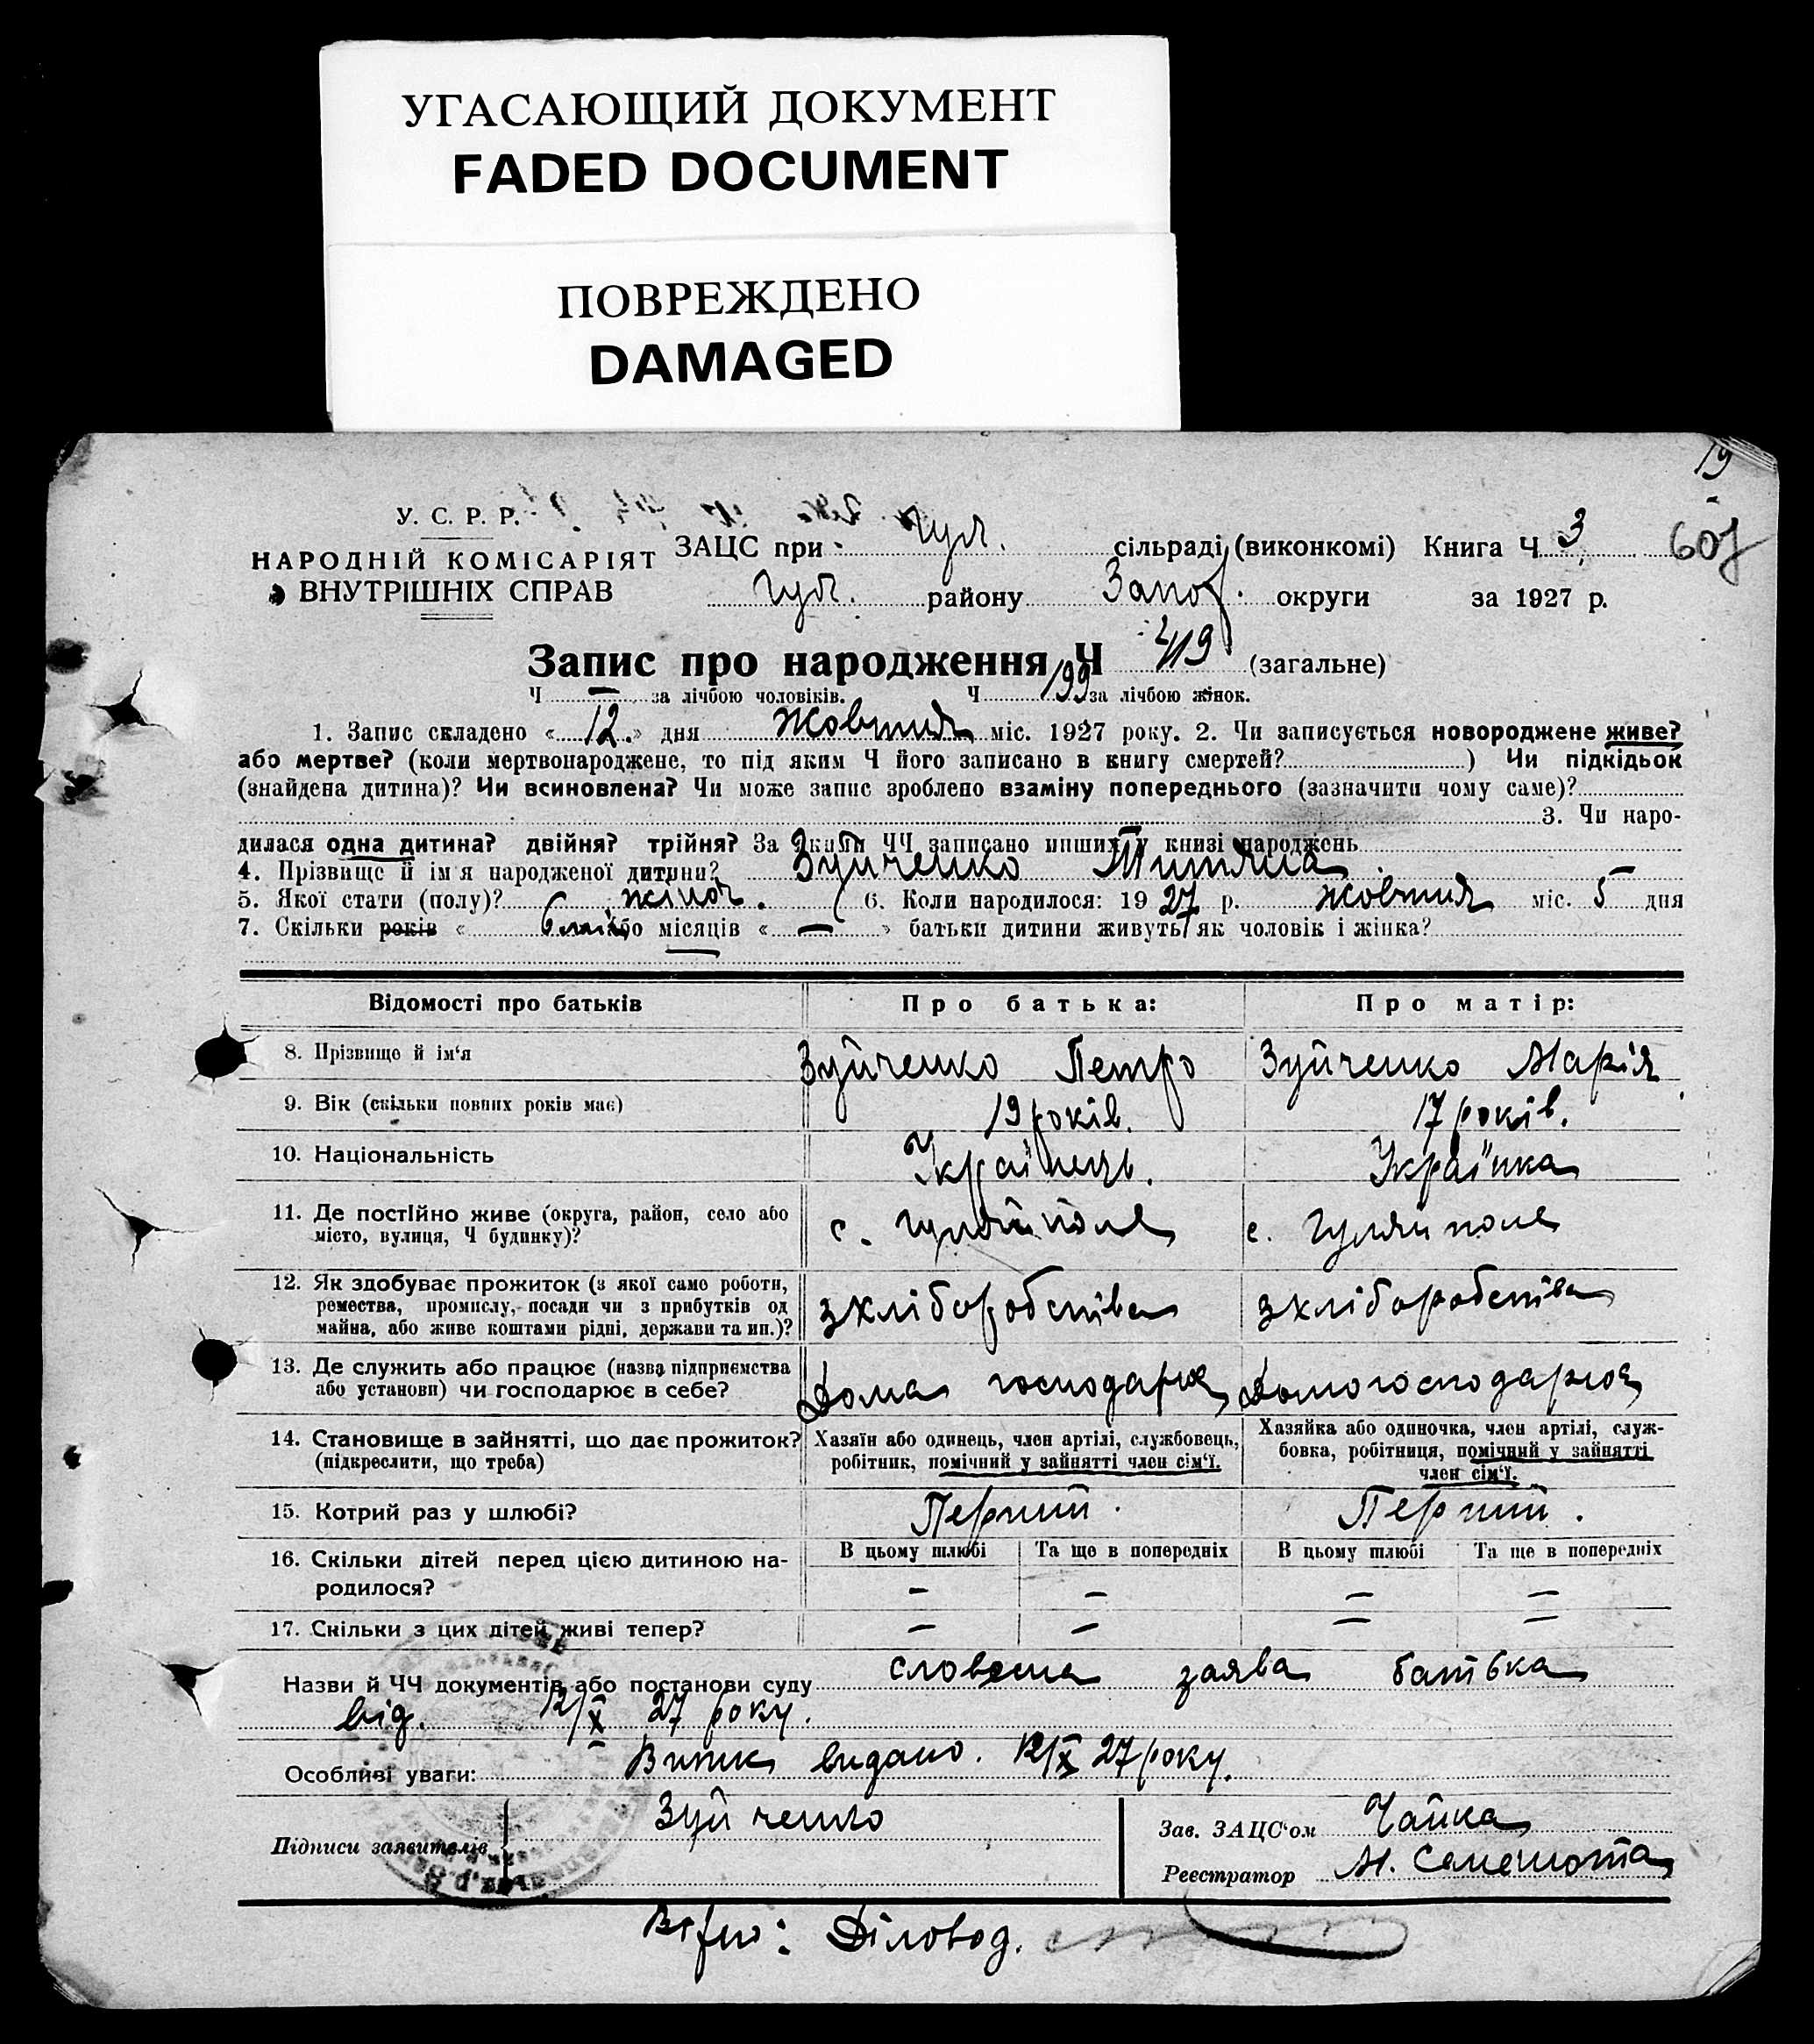 УГАСАЮЩИЙ ДОКУМЕНТ
FADED DOCUMENT
ПОВРЕЖДЕНО
DAMAGED
19
У. С. Р. Р.
НАРОДНІЙ КОМІСАРІЯТ
ВНУТРІШНІХ СПРАВ
ЗАЦС при Гул. сільраді (виконкомі) Книга Ч 3
Гул. району Запор. округи за 1927 р.
Запис про народження Ч 419 (загальне)
Ч — за лічбою чоловіків. Ч 199 за лічбою жінок.
1. Запис складено «12» дня Жовтня міс. 1927 року. 2. Чи записується новороджене живе?
або мертве? (коли мертвонароджене, то під яким Ч його записано в книгу смертей?) Чи підкідьок
(знайдена дитина)? Чи всиновлена? Чи може запис зроблено взаміну попереднього (зазначити чому саме)?
3. Чи наро-
дилася одна дитина? двійня? трійня? За якими ЧЧ записано инших у книзі народжень —
4. Прізвище й ім'я народженої дитини? Зуйченко
5. Якої стати (полу)? жіноч. 6. Коли народилося: 1927 р. жовтня міс. 5 дня
7. Скільки років « або місяців « — » батьки дитини живуть як чоловік і жінка?
Відомості про батьків Про батька: Про матір:
8. Прізвище й ім'я Зуйченко Петро Зуйченко Марія
9. Вік (скільки повних років має) 19 років. 17 років.
10. Національність Українець. Українка
11. Де постійно живе (округа, район, село або
місто, вулиця, Ч будинку)? с. Гуляйполя с. Гуляйполя
12. Як здобуває прожиток (з якої саме роботи,
ремества, промислу, посади чи з прибутків од
майна, або живе коштами рідні, держави та ин.)? з хліборобства з хліборобства
13. Де служить або працює (назва підприємства
або установи) чи господарює в себе? Дома господарює Дома господарює
14. Становище в зайнятті, що дає прожиток?
(підкреслити, що треба)
Хазяїн або одинець, член артілі, службовець,
робітник, помічний у зайнятті член сім'ї.
Хазяйка або одиночка, член артілі, служ-
бовка, робітниця, помічний у зайнятті
член сім'ї.
15. Котрий раз у шлюбі? Перший. Перший.
16. Скільки дітей перед цією дитиною на-
родилося?
В цьому шлюбі Та ще в попередніх В цьому шлюбі Та ще в попередніх
— — — —
17. Скільки з цих дітей живі тепер? — — — —
Назви й ЧЧ документів або постанови суду словесна заява батька
від. 12/X 27 року.
Особливі уваги: Випис видано. 12/X 27 року.
Підписи заявителів Зуйченко
Зав. ЗАЦС'ом Чайка
Реєстратор
Вірно: Діловод.